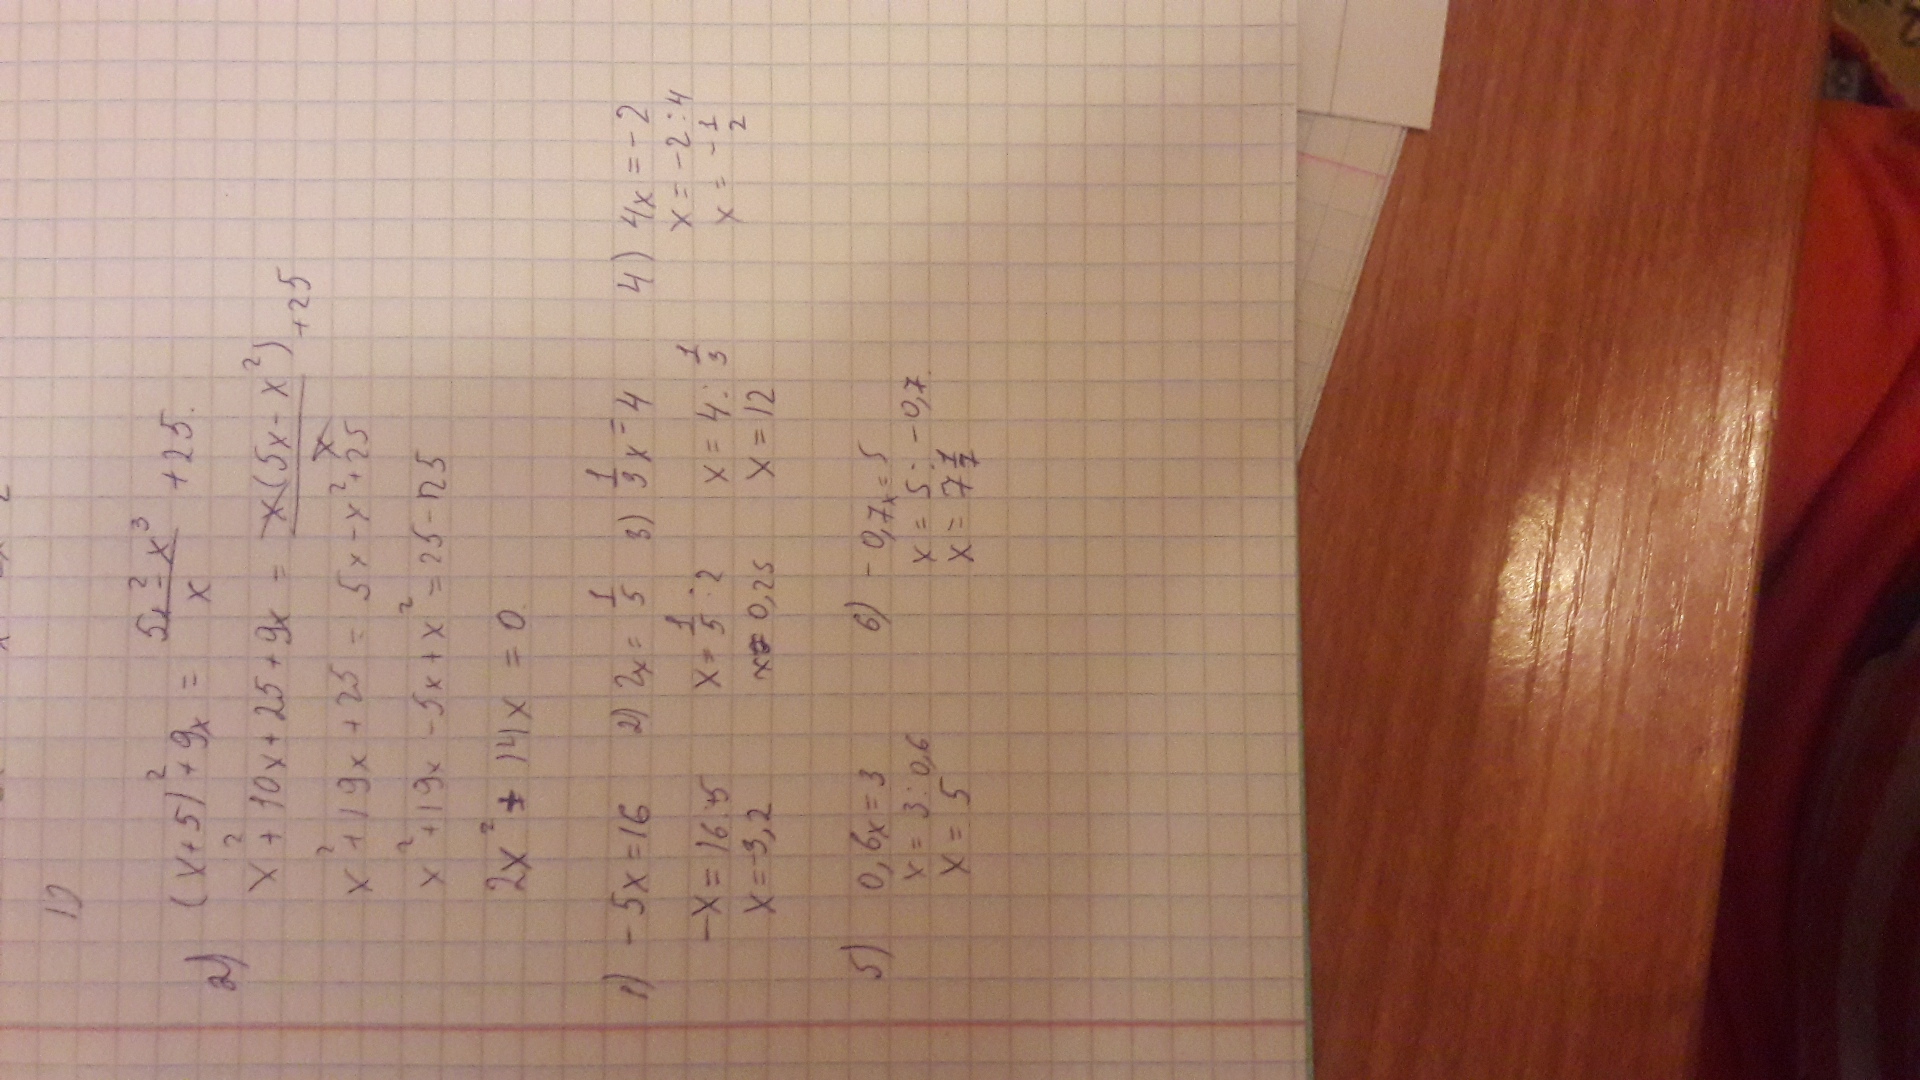 1)
2) (x+5)² + 9x = (5x² - x³)/x + 25.
x² + 10x + 25 + 9x = x(5x - x²)/x + 25
x² + 19x + 25 = 5x - x² + 25
x² + 19x - 5x + x² = 25 - 25
2x² + 14x = 0.
1) -5x = 16
-x = 16:5
x = -3,2
2) 2x = 1/5
x = 1/5 : 2
x = 0,25
3) 1/3 x = 4
x = 4 : 1/3
x = 12
4) 4x = -2
x = -2 : 4
x = -1/2
5) 0,6x = 3
x = 3 : 0,6
x = 5
6) -0,7x = 5
x = 5 : -0,7.
x = 7 1/7